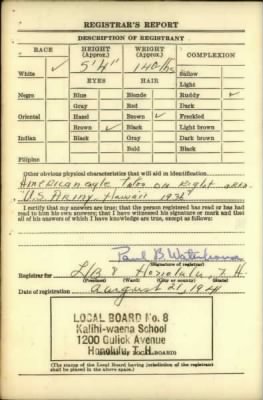 REGISTRAR'S REPORT
DESCRIPTION OF REGISTRANT
RACE HEIGHT (Approx.) WEIGHT (Approx.) COMPLEXION
White ✓ 5'4" 140 lbs Sallow
EYES HAIR Light
Negro Blue Blonde Ruddy ✓
Gray Red Dark
Oriental Hazel Brown ✓ Freckled
Brown ✓ Black Light brown
Indian Black Gray Dark brown
Bald Black
Filipino
Other obvious physical characteristics that will aid in identification
American eagle Tatoo on Right arm
U.S. Army Hawaii 1932
I certify that my answers are true; that the person registered has read or has had
read to him his own answers; that I have witnessed his signature or mark and that
all of his answers of which I have knowledge are true, except as follows:
Paul B Waterhouse
(Signature of registrar)
Registrar for L/B 8 Honolulu, T.H.
(Local Board) (City or county) (State)
Date of registration August 21, 1941
LOCAL BOARD No. 8
Kalihi-waena School
1200 Gulick Avenue
Honolulu, T. H.
(The stamp of the Local Board having jurisdiction of the registrant
shall be placed in the above space.)